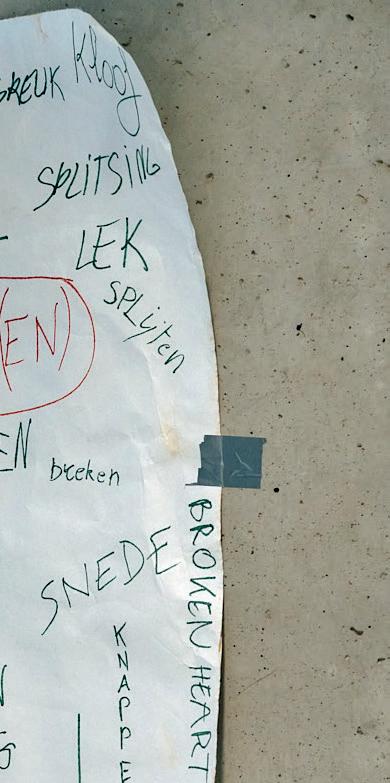 BREUK
Kloof
SPLITSING
LEK
(EN)
SPLijten
EN
breken
SNEDE
BROKEN HEART
KNAPPE